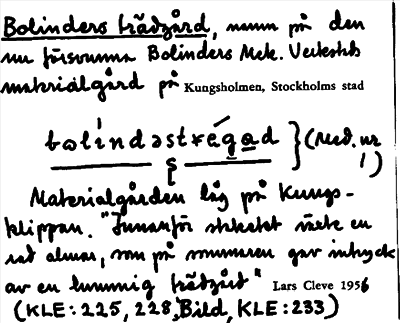 Bolinders trädgård, namn på den
nu försvunna Bolinders Mek. Verkstads
materialgård på Kungsholmen, Stockholms stad
bolindəstrègad } (Med. nr 1)
Materialgården låg på Kungs-
klippan. "Innanför staketet växte en
rad almar, som på sommaren gav intryck
av en lummig trädgård" Lars Cleve 1956
(KLE: 225, 228, Bild, KLE: 233)